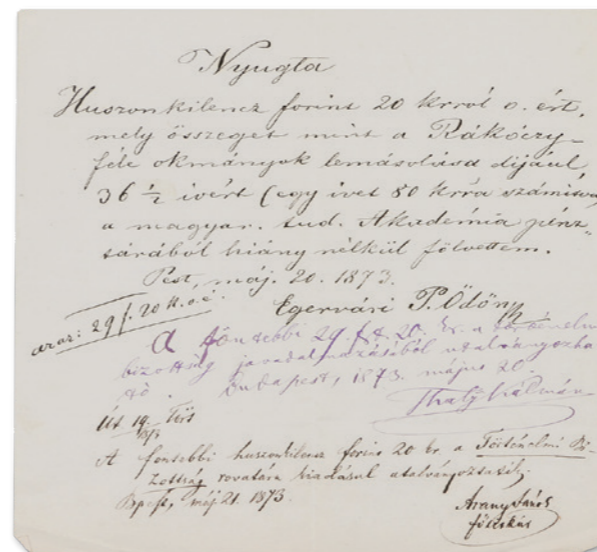 Nyugta
Huszonkilencz forint 20 krról o. ért.
mely összeget mint a Rákóczy-
féle okmányok lemásolása dijául,
36 ½ ivért (egy ivet 80 krra számitva)
a magyar. tud. Akadémia pénz-
tárából hiány nélkül fölvettem.
Pest, máj. 20. 1873.
azaz: 29 f. 20 kr. o. é.
Egervári P. Ödöny
A fönntebbi 29. ft. 20. kr. a történelmi
bizottság javadalmazásából utalványozha-
tó. Budapest, 1873. május 20.
Thaly Kálmán
Ut 19. Tört
1873
A fentebbi huszonkilencz forint 20 kr. a Történelmi Bi-
zottság rovatára kiadásul utalványoztatik.
Bpest, máj 21. 1873.
Arany János
főtitkár